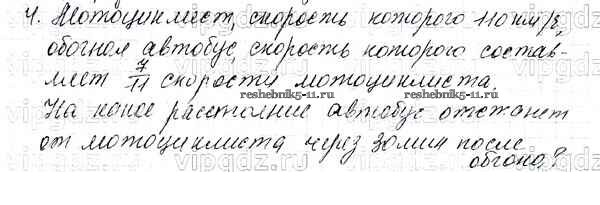 4. Мотоциклист, скорость которого 110 км/ч,
обогнал автобус, скорость которого состав-
ляет 7/11 скорости мотоциклиста.
reshebnik5-11.ru
reshebnik5-11.ru
На какое расстояние автобус отстанет
от мотоциклиста через 30 мин после
обгона?